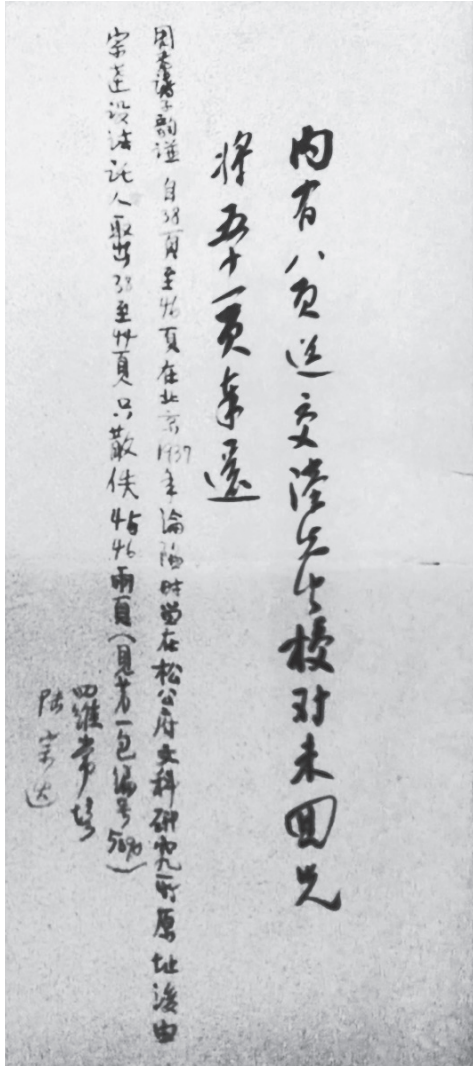 内有八页送交陆先生校对未回兄
将五十一页奉还
周秦诗韵谱自38頁至46頁在北京1937年淪陷时尚在松公府文科研究所原址後由
宗达设法託人取出38至44頁只散佚45 46兩頁(見
一包编号5070)
罗常培
陆宗达